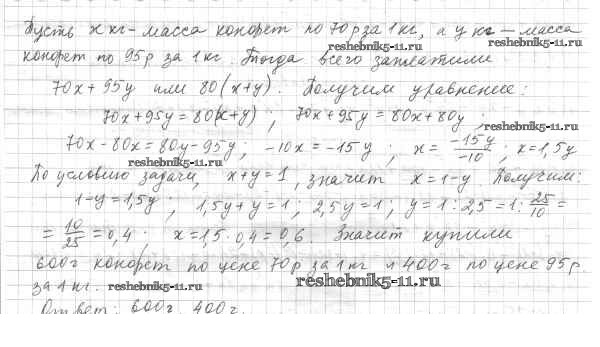 Пусть x кг – масса конфет по 70р за 1кг, а y кг – масса
reshebnik5-11.ru
конфет по 95р за 1кг. Тогда всего заплатили
70x + 95y или 80(x+y). Получим уравнение:
70x+95y=80(x+y) ; 70x+95y=80x+80y .
reshebnik5-11.ru
70x-80x=80y-95y; -10x=-15y ; x=\frac{-15y}{-10} ; x=1,5y
reshebnik5-11.ru
По условию задачи, x+y=1, значит x=1-y. Получим:
1-y=1,5y ; 1,5y+y=1 ; 2,5y=1; y=1:2,5=1:\frac{25}{10}=
=\frac{10}{25}=0,4 ; x=1,5·0,4=0,6. Значит купили
600г конфет по цене 70р за 1кг и 400г по цене 95р.
reshebnik5-11.ru
за 1кг.
reshebnik5-11.ru
Ответ: 600г, 400г.